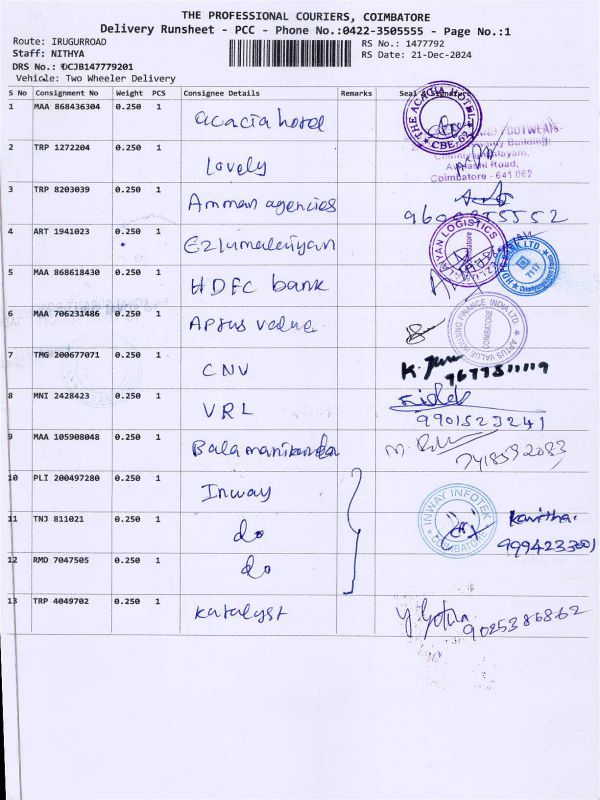 THE PROFESSIONAL COURIERS, COIMBATORE
Delivery Runsheet - PCC - Phone No.:0422-3505555 - Page No.:1
Route: IRUGURROAD
Staff: NITHYA
RS No.: 1477792
RS Date: 21-Dec-2024
DRS No.: DCJB147779201
Vehicle: Two Wheeler Delivery
S No Consignment No Weight PCS Consignee Details Remarks Seal & Signature
1 MAA 868436304 0.250 1 acacia hotel THE ACACIA HOTEL CBE-62
2 TRP 1272204 0.250 1 Lovely FOOTWEAR
Building
Road,
Coimbatore - 641 062
3 TRP 8203039 0.250 1 Amman agencies
4 ART 1941023 0.250 1 Ezlumalaiyan LOGISTICS
5 MAA 868618430 0.250 1 HDFC bank BANK LTD. 7117
6 MAA 706231486 0.250 1 Aptus value APTUS VALUE HOUSING FINANCE INDIA LTD COIMBATORE
7 TMG 200677071 0.250 1 CNV
8 MNI 2428423 0.250 1 VRL 9901523241
9 MAA 105908048 0.250 1 Balamanikanda 7418592083
10 PLI 200497280 0.250 1 Inway INWAY INFOTEK COIMBATORE Kavitha.
11 TNJ 811021 0.250 1 do
12 RMD 7047505 0.250 1 do
13 TRP 4049702 0.250 1 Katalyst 9025386862